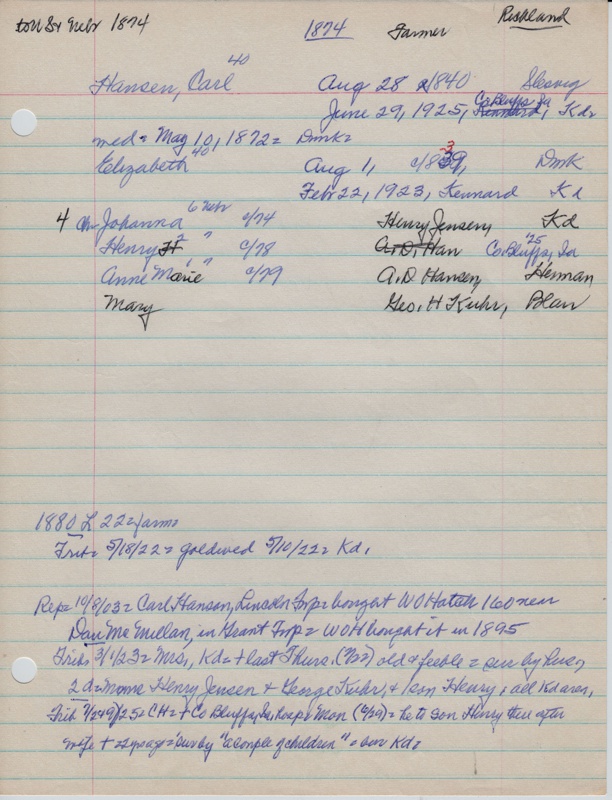 to US & Nebr 1874 1874 Farmer Richland
40
Hansen, Carl Aug 28 c/1840 Slesvig
June 29, 1925, Kennard, Co Bluffs Ia, Kd
med = May 10, 1872 = Dmk =
Elizabeth 40 Aug 1, c/1839, 3 Dmk
Feb 22, 1923, Kennard Kd
4 Ch Johanna 6 Nebr c/74 Henry Jensen, Kd
Henry H 2 " c/78 A. D. Han Co. Bluffs, '25 Ia
Anne Marie 1 " c/79 A. D. Hansen, Herman
Mary Geo. H Kuhr, Blair
1880 L 22 = farm =
Trib = 5/18/22 = goldwed 5/10/22 = Kd,
Rep = 10/8/03 = Carl Hansen, Lincoln Twp = bought W O Hatch 160 near
Dan McMillan, in Grant Twp = WOH bought it in 1895
Trib 3/1/23 = Mrs, Kd = + last Thurs. (2/22) old & feeble = sur by hus,
2 d = Mmes Henry Jensen & George Kuhr, & son Henry, all Kd area,
Trib 7/2 & 9/25 = CH = + Co Bluffs, Ia hosp = Mon (6/29) = he to son Henry there after
wife + = sur by "a couple of children" = bur Kd =